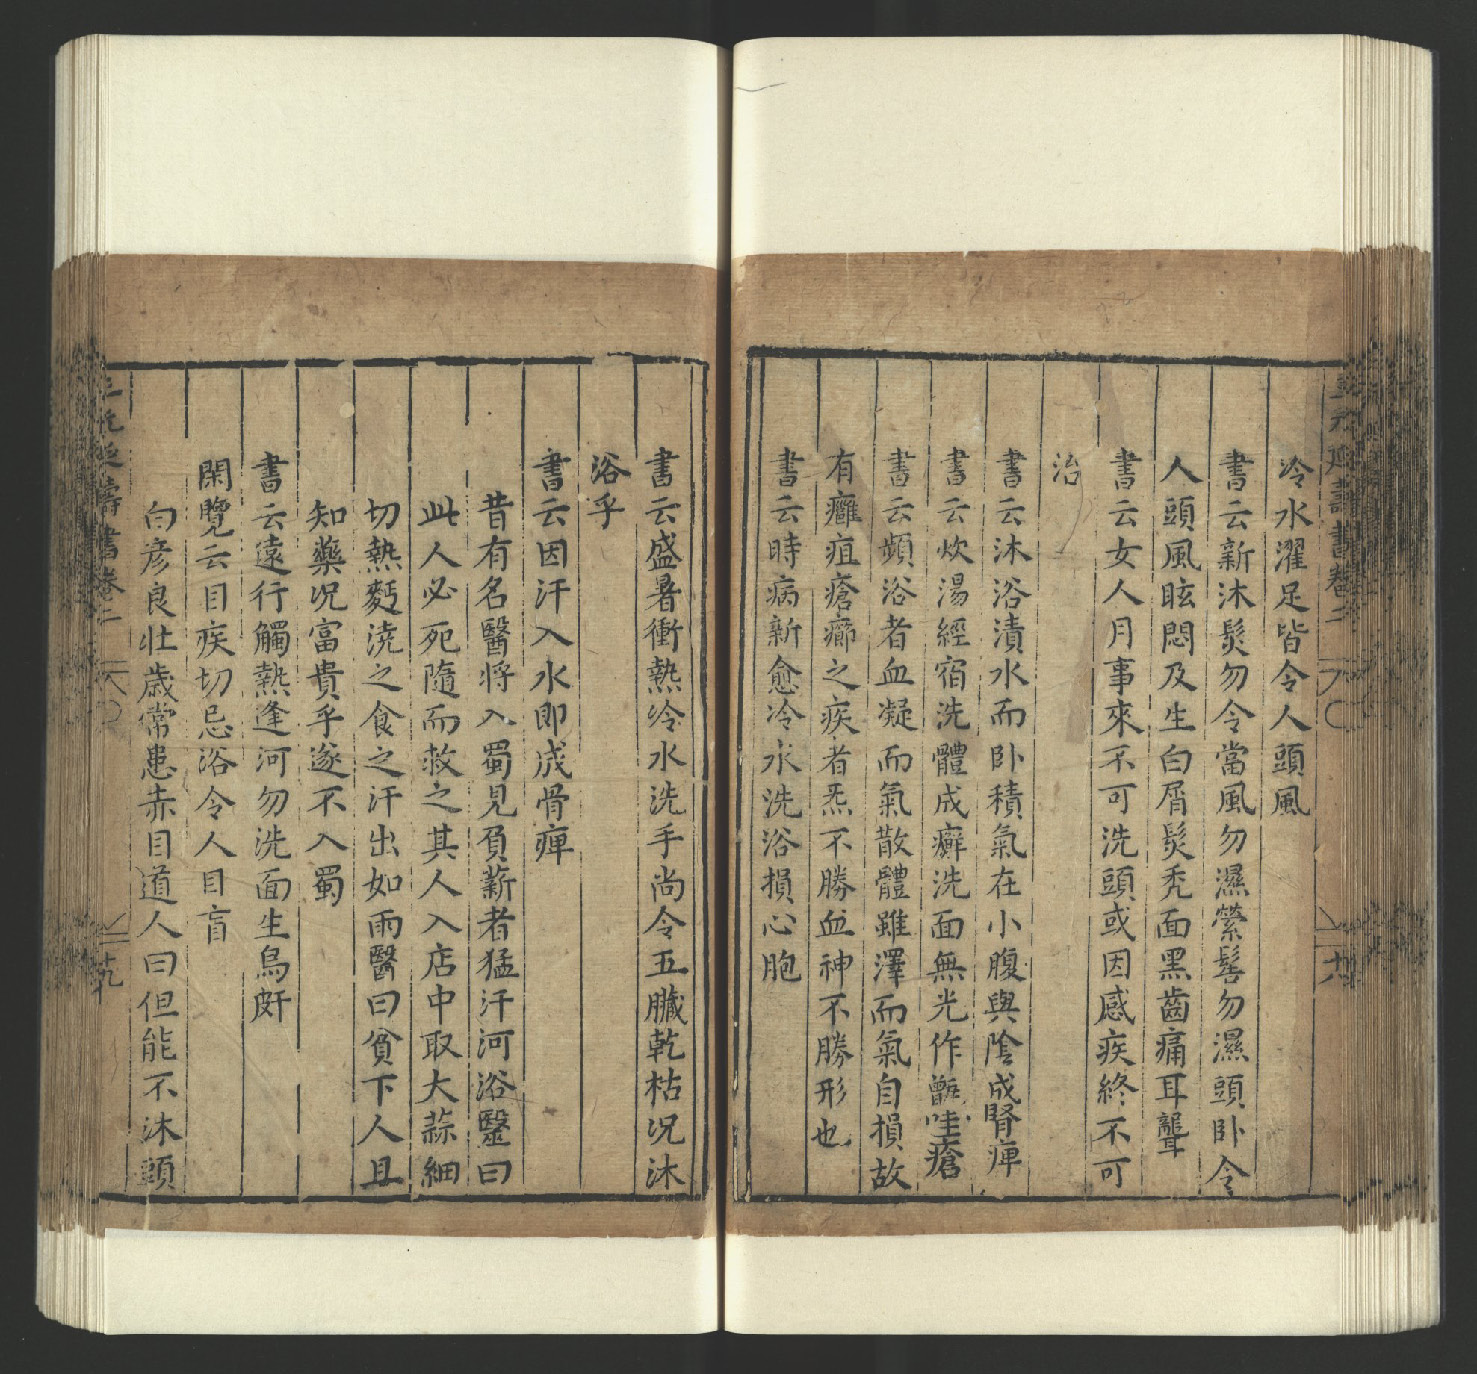 冷水濯足皆令人頭風
書云新沐髮勿令當風勿濕縈髻勿濕頭卧令
人頭風眩悶及生白屑髮秃面黑齒痛耳聾
書云女人月事來不可洗頭或因感疾終不可
治
書云沐浴漬水而卧積氣在小腹與陰成腎痺
書云炊湯經宿洗體成癬洗面無光作甑哇瘡
書云頻浴者血凝而氣散體雖澤而氣自損故
有癰疽瘡癤之疾者炁不勝血神不勝形也
書云時病新愈冷水洗浴損心胞
書云盛暑衝熱冷水洗手尚令五臟乾枯况沐
浴乎
書云因汗入水即成骨痺
昔有名醫將入蜀見負薪者猛汗河浴醫曰
此人必死隨而救之其人入店中取大蒜細
切熱麪澆之食之汗出如雨醫曰貧下人且
知藥况富貴乎遂不入蜀
書云遠行觸熱逢河勿洗面生烏皯
閑覽云目疾切忌浴令人目盲
白彦良壮歲常患赤目道人曰但能不沐頭
元延壽書卷二